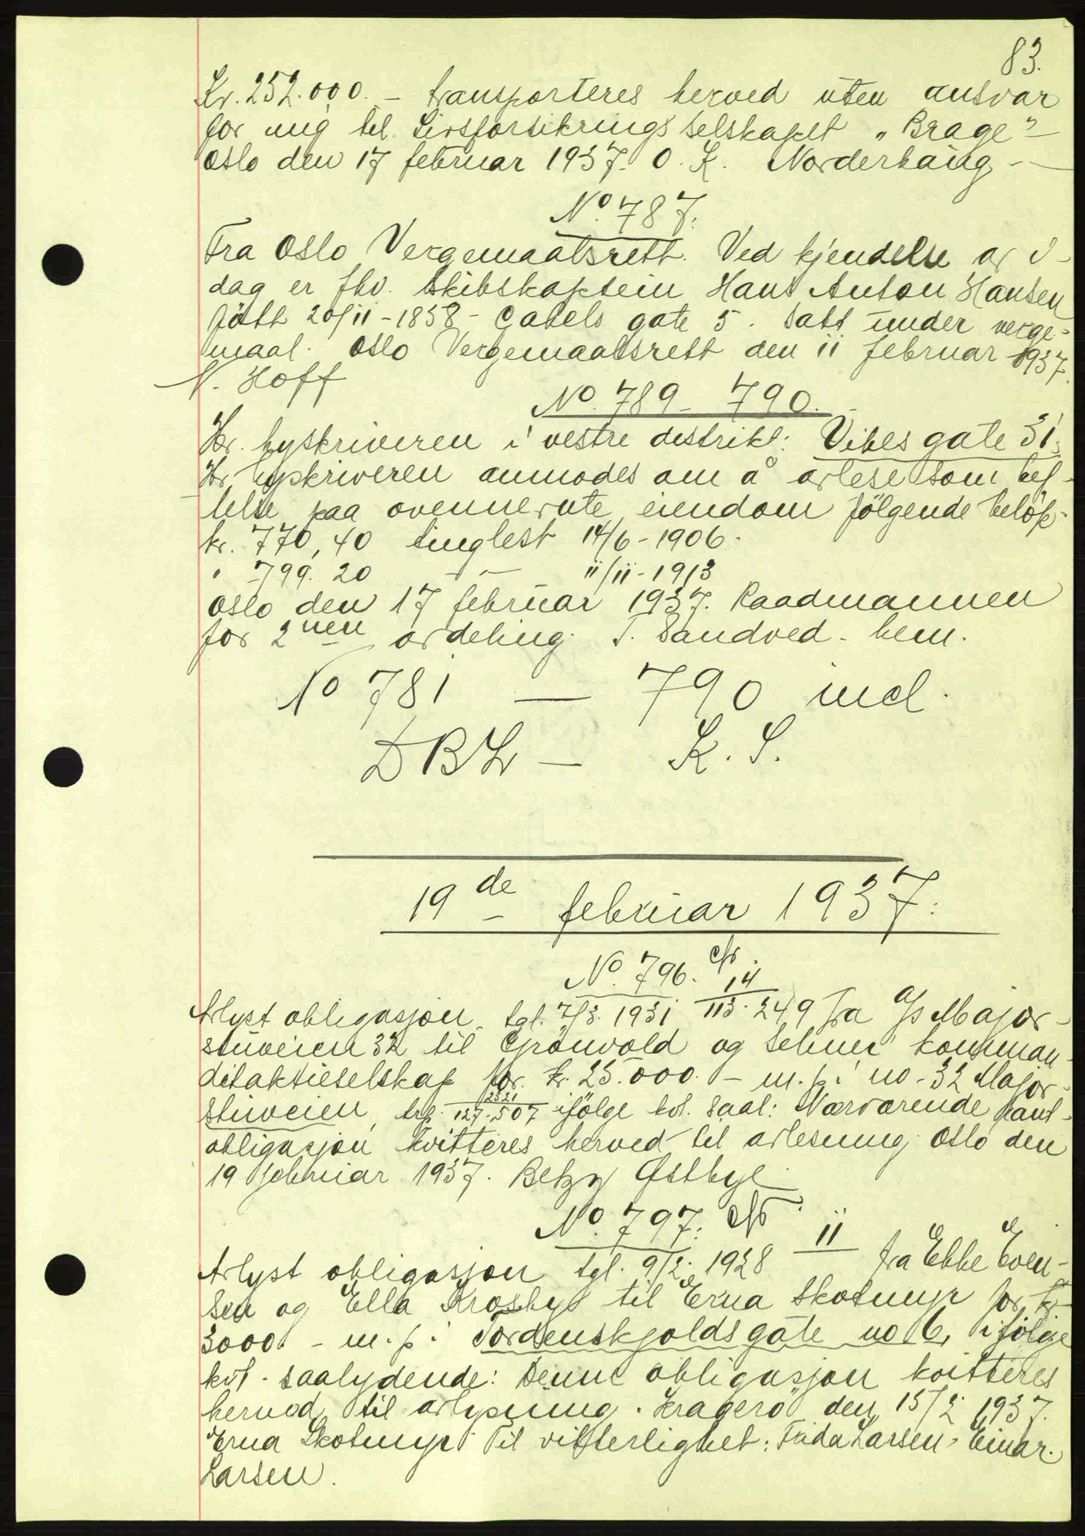 83.
Kr. 252.000. – transporteres herved uten ansvar
for mig til Livsforsikringsselskapet „Brage" –
Oslo den 17 februar 1937. O. K. Norderhaug –
No. 787.
Fra Oslo Vergemaalsrett. Ved kjendelse av i-
dag er fhv. skibskaptein Hans Anton Hansen
født 20/11-1858 – Gabels gate 5. satt under verge-
maal. Oslo Vergemaalsrett den 11 februar 1937.
N. Hoff
No. 789 – 790.
Hr. byskriveren i vestre distrikt: Vibes gate 31.
Hr. byskriveren anmodes om å avlese som hef-
telse paa ovennevnte eiendom følgende beløp
kr. 770,40 tinglest 14/6-1906.
" 799.20 – – 11/11-1913
Oslo den 17 februar 1937. Raadmannen
for 2nen avdeling. T. Sandved. bem.
No 781 — 790 incl.
DBL – K. S.
19de februar 1937:
No. 796.
Avlyst obligasjon tgl. 7/3. 1931 14/113.249 fra A/S Major-
stuveien 32 til Grønvold og komman-
ditaktieselskap for kr. 25.000. – m. p. i no. 32 Major-
stuveien, 127.507 ifølge kvt. saal: Nærværende pant-
obligasjon kvitteres herved til avlesning. Oslo den
19 februar 1937. Betzy Østbye.
No. 797. 11
Avlyst obligasjon tgl. 9/2. 1928 fra Ebbe Even-
sen og Ella Krosby til Erna Skotmyr for kr
3000 – m. p. i Tordenskjoldsgate no 6, ifølge
kvt. saalydende: Denne obligasjon kvitteres
herved til avlysning. Kragerø den 15/2 1937.
Erna Skotmyr Til vitterlighet: Frida Larsen, Einar
Larsen.